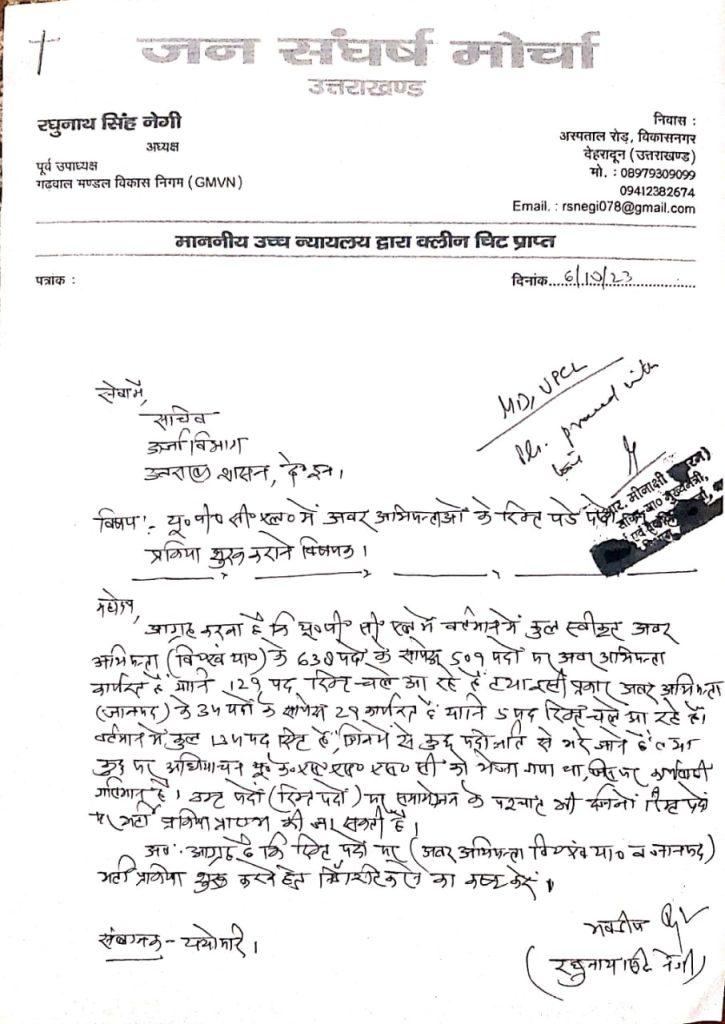 जन संघर्ष मोर्चा
उत्तराखण्ड
रघुनाथ सिंह नेगी
अध्यक्ष
पूर्व उपाध्यक्ष
गढवाल मण्डल विकास निगम (GMVN)
निवास :
अस्पताल रोड़, विकासनगर
देहरादून (उत्तराखण्ड)
मो. : 08979309099
09412382674
Email. : rsnegi078@gmail.com
माननीय उच्च न्यायालय द्वारा क्लीन चिट प्राप्त
पत्रांक :
दिनांक....6/10/23....
सेवा में,
सचिव
ऊर्जा विभाग
उत्तराखण्ड शासन, दे०दून।
MD, UPCL
Pls. proceed with
आर. मीनाक्षी
विषय :- यू० पी० सी० एल० में अवर अभियन्ताओं के रिक्त पडे पदों
प्रक्रिया शुरू कराने विषयक।
महोदय,
आग्रह करना है कि यू० पी० सी० एल में वर्तमान में कुल स्वीकृत अवर
अभियन्ता (वि० एवं या०) के 630 पदों के सापेक्ष 501 पदों पर अवर अभियन्ता
कार्यरत हैं यानि 129 पद रिक्त चले आ रहे हैं तथा इसी प्रकार अवर अभियन्ता
(जानपद) के 34 पदों के सापेक्ष 29 कार्यरत हैं यानि 5 पद रिक्त चले आ रहे हैं।
वर्तमान में कुल 134 पद रिक्त हैं, जिनमें से कुछ पदोन्नति से भरे जाने हैं तथा
कुछ पर अधियाचन यू० के० एस० एस० एस० सी को भेजा गया था, जिस पर कार्यवाही
गतिमान है। उक्त पदों (रिक्त पदों) पर समायोजन के पश्चात भी दर्जनों रिक्त पदों
पर भर्ती प्रक्रिया प्रारम्भ की जा सकती है।
अतः आग्रह है कि रिक्त पदों पर (अवर अभियन्ता वि० एवं या० व जानपद)
भर्ती प्रक्रिया शुरू करने हेतु निर्देशित करने का कष्ट करें।
संलग्नक - यथोपरि।
भवदीय
(रघुनाथ सिंह नेगी)